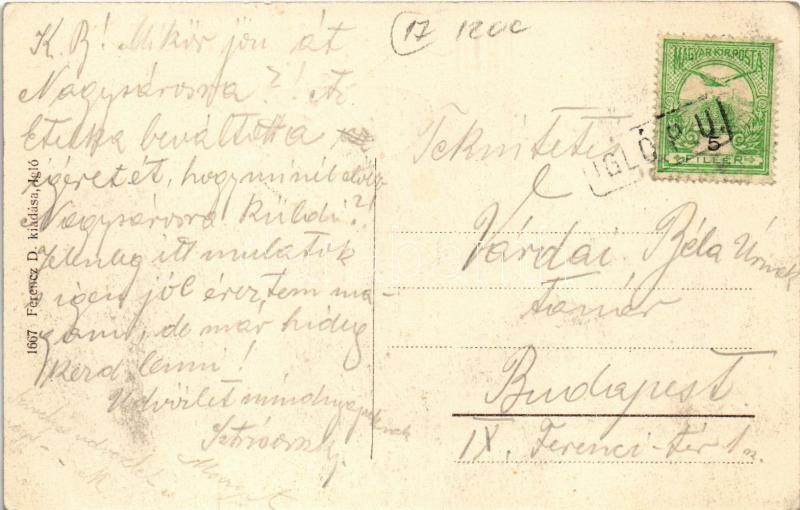 17 1200
K. B! Mikor jön át
Nagysárosra?! Az
Etelka beváltotta
igéretét, hogy minél
Nagysárosra küldi?!
Jelenleg itt mulatok
s igen jól éreztem ma-
gam, de már hideg
kezd lenni!
Üdvözlet mindnyájuknak
1667 Ferencz D. kiadása, Igló
MAGYAR KIR. POSTA
5
FILLÉR
IGLÓ P.U.
Tekintetes
Várdai Béla Úrnak
tanár
Budapest.
IX. Ferenc-tér 1